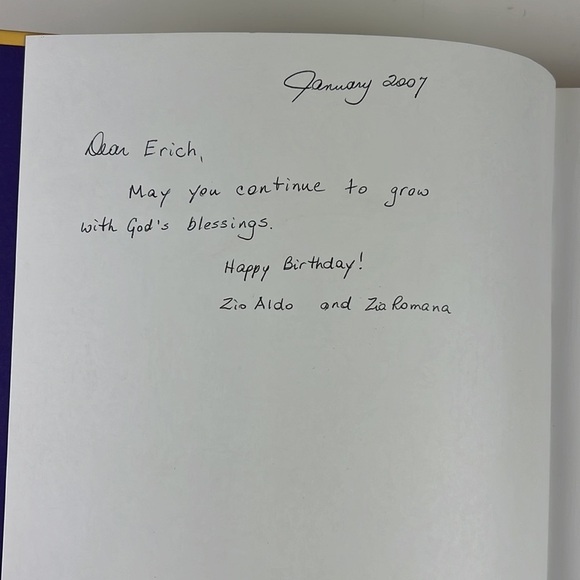 January 2007
Dear Erich,
May you continue to grow
with God's blessings.
Happy Birthday!
Zio Aldo and Zia Romana